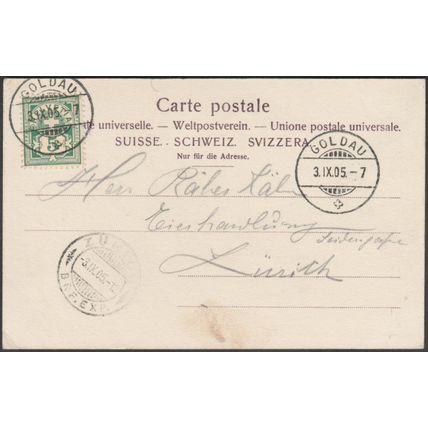 GOLDAU
3.IX.05.-7
5
Carte postale
te universelle. — Weltpostverein. — Unione postale universale.
SUISSE. SCHWEIZ. SVIZZERA
Nur für die Adresse.
GOLDAU
3.IX.05.-7
Herr
Eierhandlung
Zürich
BRF.EXP.